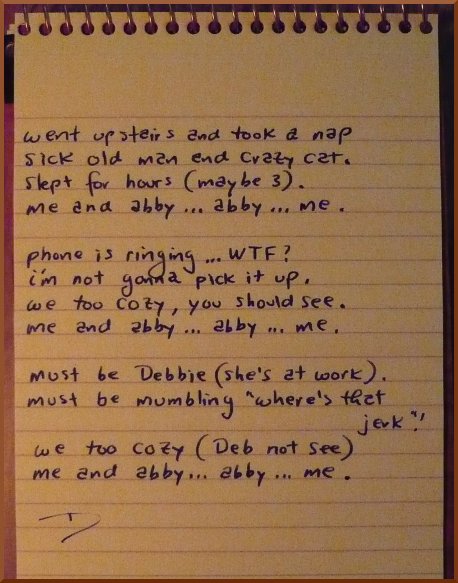 went upstairs and took a nap
sick old man and crazy cat.
slept for hours (maybe 3).
me and abby ... abby ... me .
phone is ringing ... WTF?
i'm not gonna pick it up.
we too cozy, you should see.
me and abby ... abby ... me .
must be Debbie (she's at work).
must be mumbling "where's that
jerk".
we too cozy (Deb not see)
me and abby ... abby ... me .